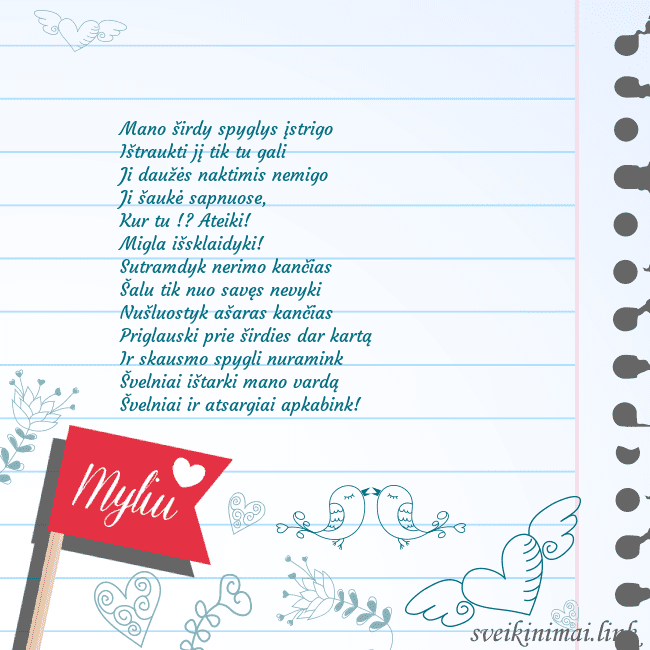 Mano širdy spyglys įstrigo
Ištraukti jį tik tu gali
Ji daužės naktimis nemigo
Ji šaukė sapnuose,
Kur tu !? Ateiki!
Migla išsklaidyki!
Sutramdyk nerimo kančias
Šalu tik nuo savęs nevyki
Nušluostyk ašaras kančias
Priglauski prie širdies dar kartą
Ir skausmo spygli nuramink
Švelniai ištarki mano vardą
Švelniai ir atsargiai apkabink!
Myliu
sveikinimai.link